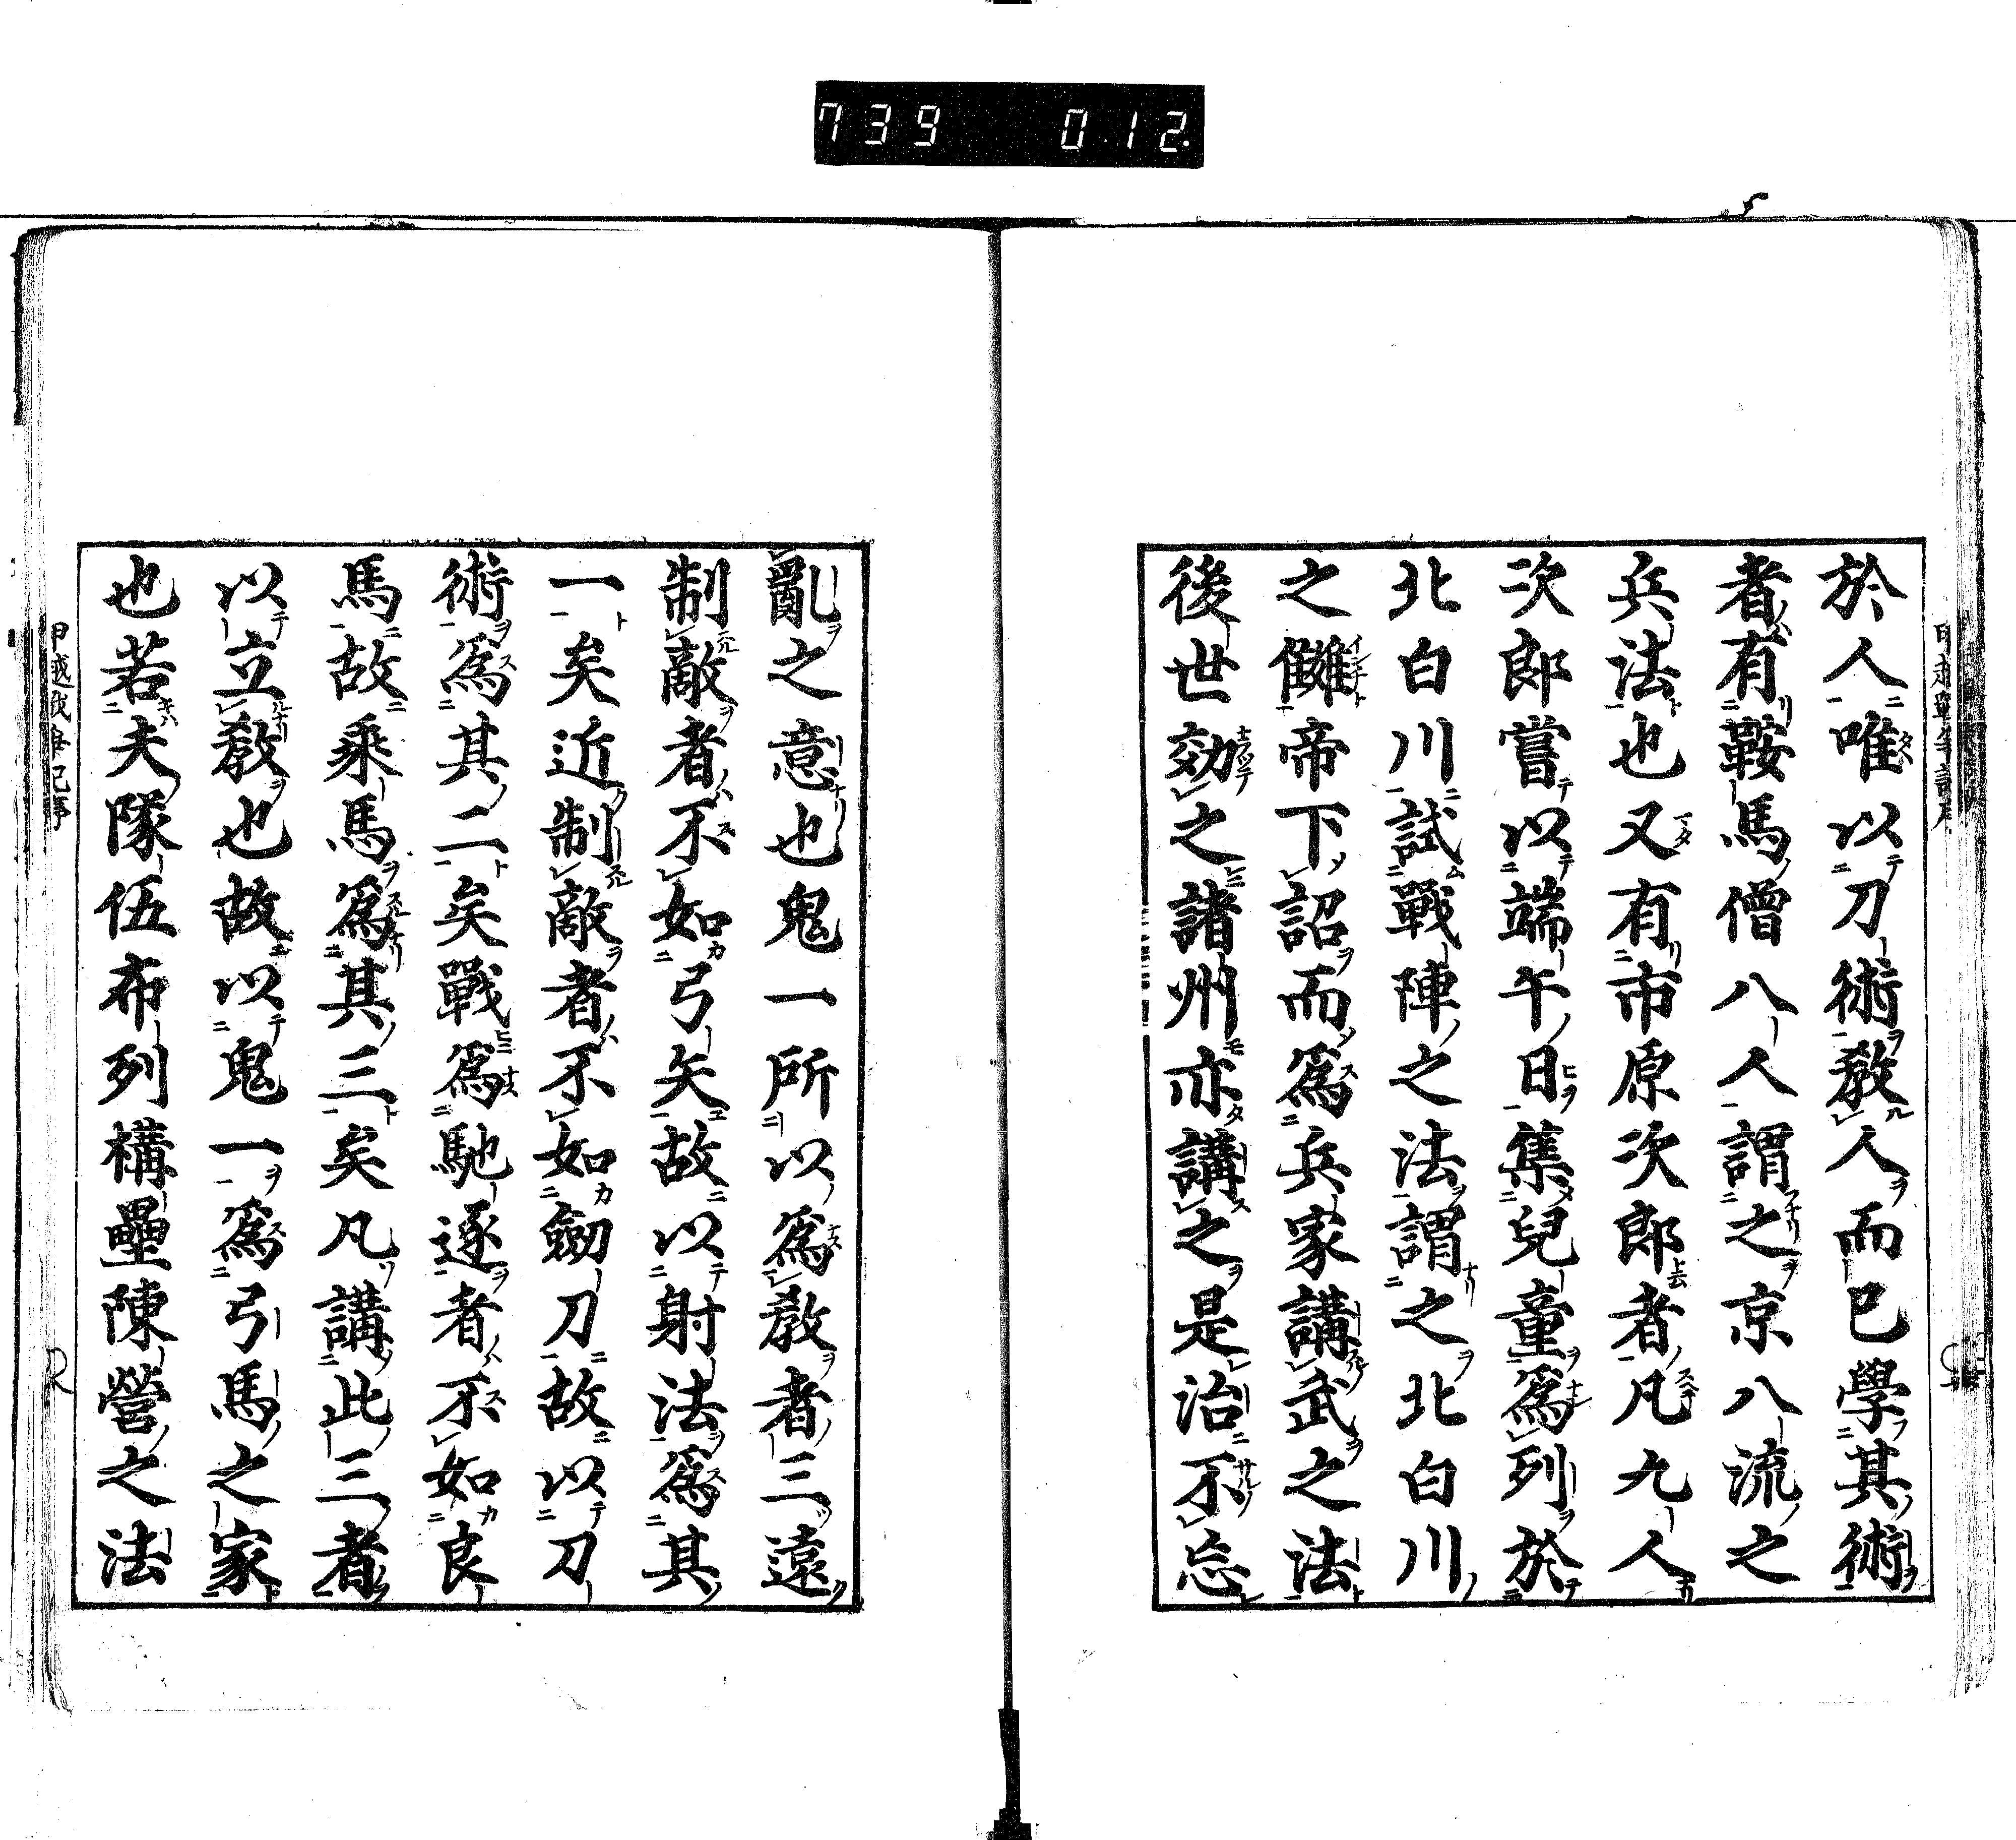 739 012.
於人唯以刀術教人而已學其術
者有鞍馬僧八人謂之京八流之
兵法也又有市原次郎者凡九人
次郎嘗以端午日集兒童爲列於
北白川試戰陣之法謂之北白川
之讎帝下詔而爲兵家講武之法
後世効之諸州亦講之是治不忘
亂之意也鬼一所以爲教者三遠
制敵者不如弓矢故以射法爲其
一矣近制敵者不如劒刀故以刀
術爲其二矣戰爲馳逐者不如良
馬故乘馬爲其三矣凡講此三者
以立教也故以鬼一爲弓馬之家
也若夫隊伍布列構壘陳營之法